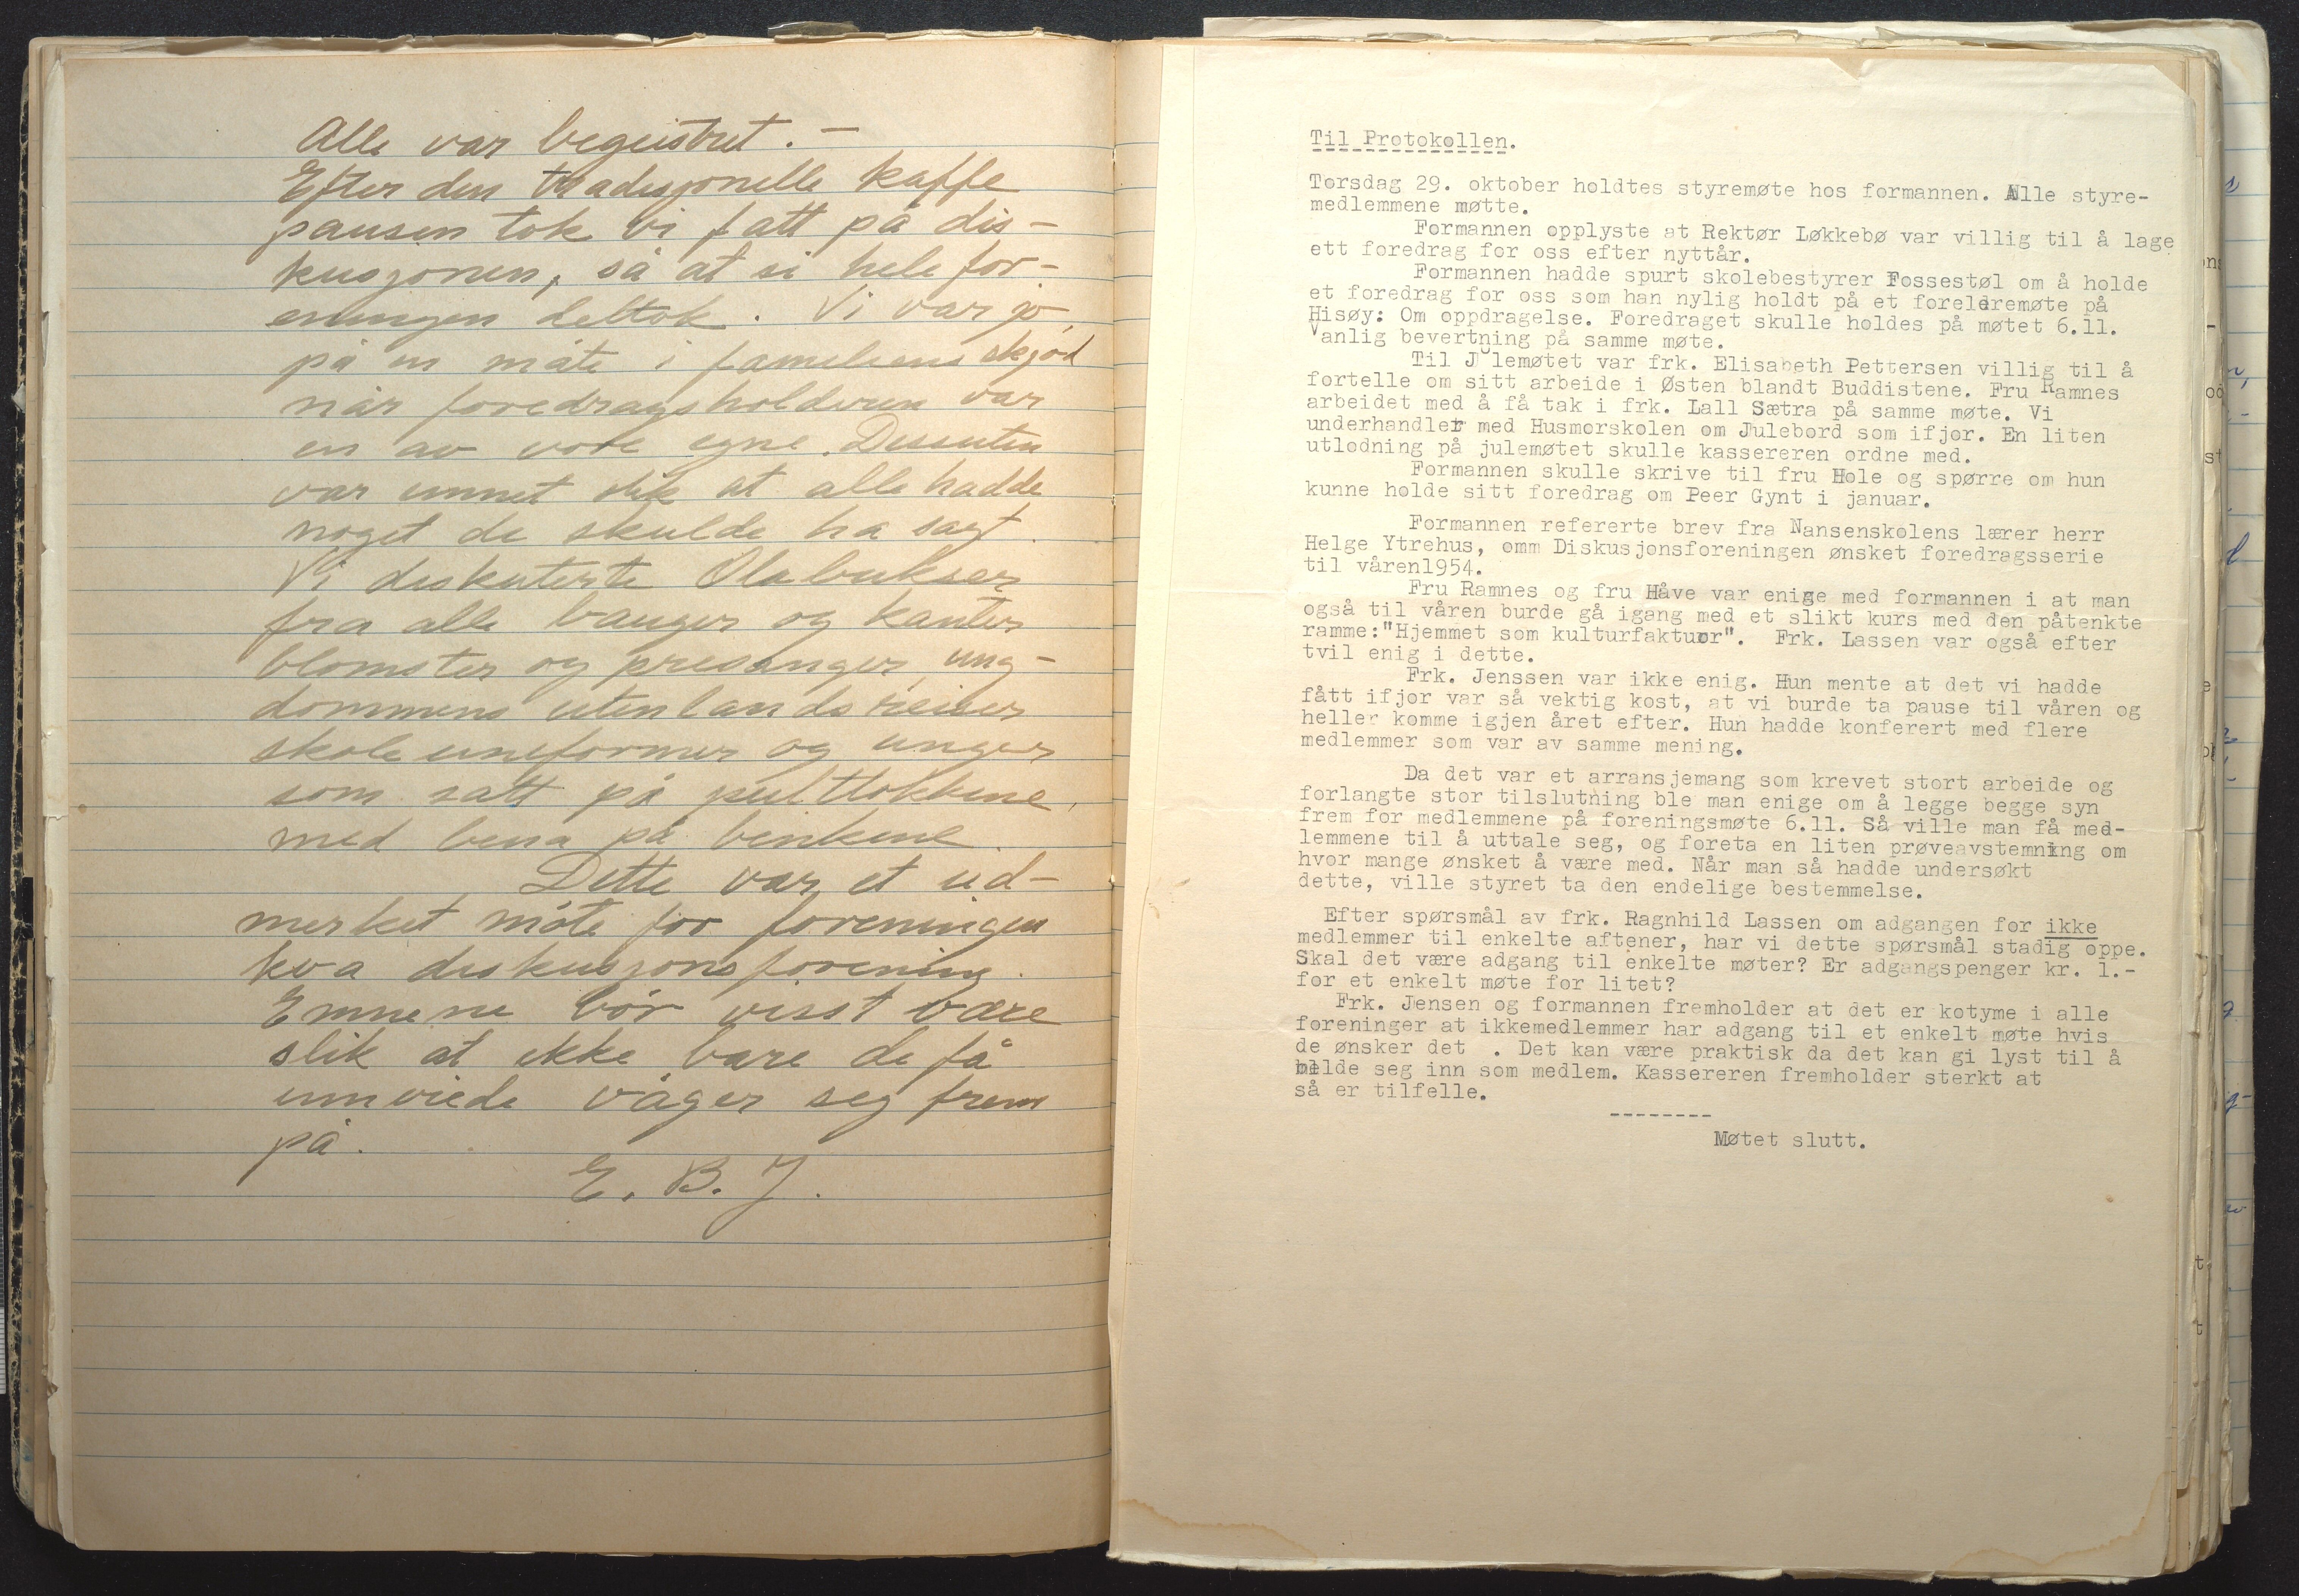 Alle var begeistret. –
Efter den tradisjonelle kaffe
pausen tok vi fatt på dis-
kusjonen, så at si hele for-
eningen deltok. Vi var jo
på en måte i familiens skjød
når foredragsholderen var
en av vore egne. Dessuten
var emnet slik at alle hadde
noget de skulde ha sagt.
Vi diskuterte Olabukser
fra alle bauger og kanter
blomster og presanger, ung-
dommens utenlandsreiser
skoleuniformer og unger
som satt på pultlokkene,
med bena på benkene.
Dette var et ud-
merket møte for foreningen
kva diskusjonsforening.
Emnene bør visst være
slik at ikke bare de få
innviede våger seg frem
på.
E. B. J.
Til Protokollen.
Torsdag 29. oktober holdtes styremøte hos formannen. Alle styre-
medlemmene møtte.
Formannen opplyste at Rektor Løkkebø var villig til å lage
ett foredrag for oss efter nyttår.
Formannen hadde spurt skolebestyrer Fossestøl om å holde
et foredrag for oss som han nylig holdt på et foreldremøte på
Hisøy: Om oppdragelse. Foredraget skulle holdes på møtet 6.11.
Vanlig bevertning på samme møte.
Til Julemøtet var frk. Elisabeth Pettersen villig til å
fortelle om sitt arbeide i Østen blandt Buddistene. Fru Ramnes
arbeidet med å få tak i frk. Lall Sætra på samme møte. Vi
underhandler med Husmorskolen om Julebord som ifjor. En liten
utlodning på julemøtet skulle kassereren ordne med.
Formannen skulle skrive til fru Hole og spørre om hun
kunne holde sitt foredrag om Peer Gynt i januar.
Formannen refererte brev fra Nansenskolens lærer herr
Helge Ytrehus, omm Diskusjonsforeningen ønsket foredragsserie
til våren1954.
Fru Ramnes og fru Håve var enige med formannen i at man
også til våren burde gå igang med et slikt kurs med den påtenkte
ramme:"Hjemmet som kulturfaktuor". Frk. Lassen var også efter
tvil enig i dette.
Frk. Jenssen var ikke enig. Hun mente at det vi hadde
fått ifjor var så vektig kost, at vi burde ta pause til våren og
heller komme igjen året efter. Hun hadde konferert med flere
medlemmer som var av samme mening.
Da det var et arransjemang som krevet stort arbeide og
forlangte stor tilslutning ble man enige om å legge begge syn
frem for medlemmene på foreningsmøte 6.11. Så ville man få med-
lemmene til å uttale seg, og foreta en liten prøveavstemning om
hvor mange ønsket å være med. Når man så hadde undersøkt
dette, ville styret ta den endelige bestemmelse.
Efter spørsmål av frk. Ragnhild Lassen om adgangen for ikke
medlemmer til enkelte aftener, har vi dette spørsmål stadig oppe.
Skal det være adgang til enkelte møter? Er adgangspenger kr. 1.-
for et enkelt møte for litet?
Frk. Jensen og formannen fremholder at det er kotyme i alle
foreninger at ikkemedlemmer har adgang til et enkelt møte hvis
de ønsker det . Det kan være praktisk da det kan gi lyst til å
melde seg inn som medlem. Kassereren fremholder sterkt at
så er tilfelle.
--------
Møtet slutt.